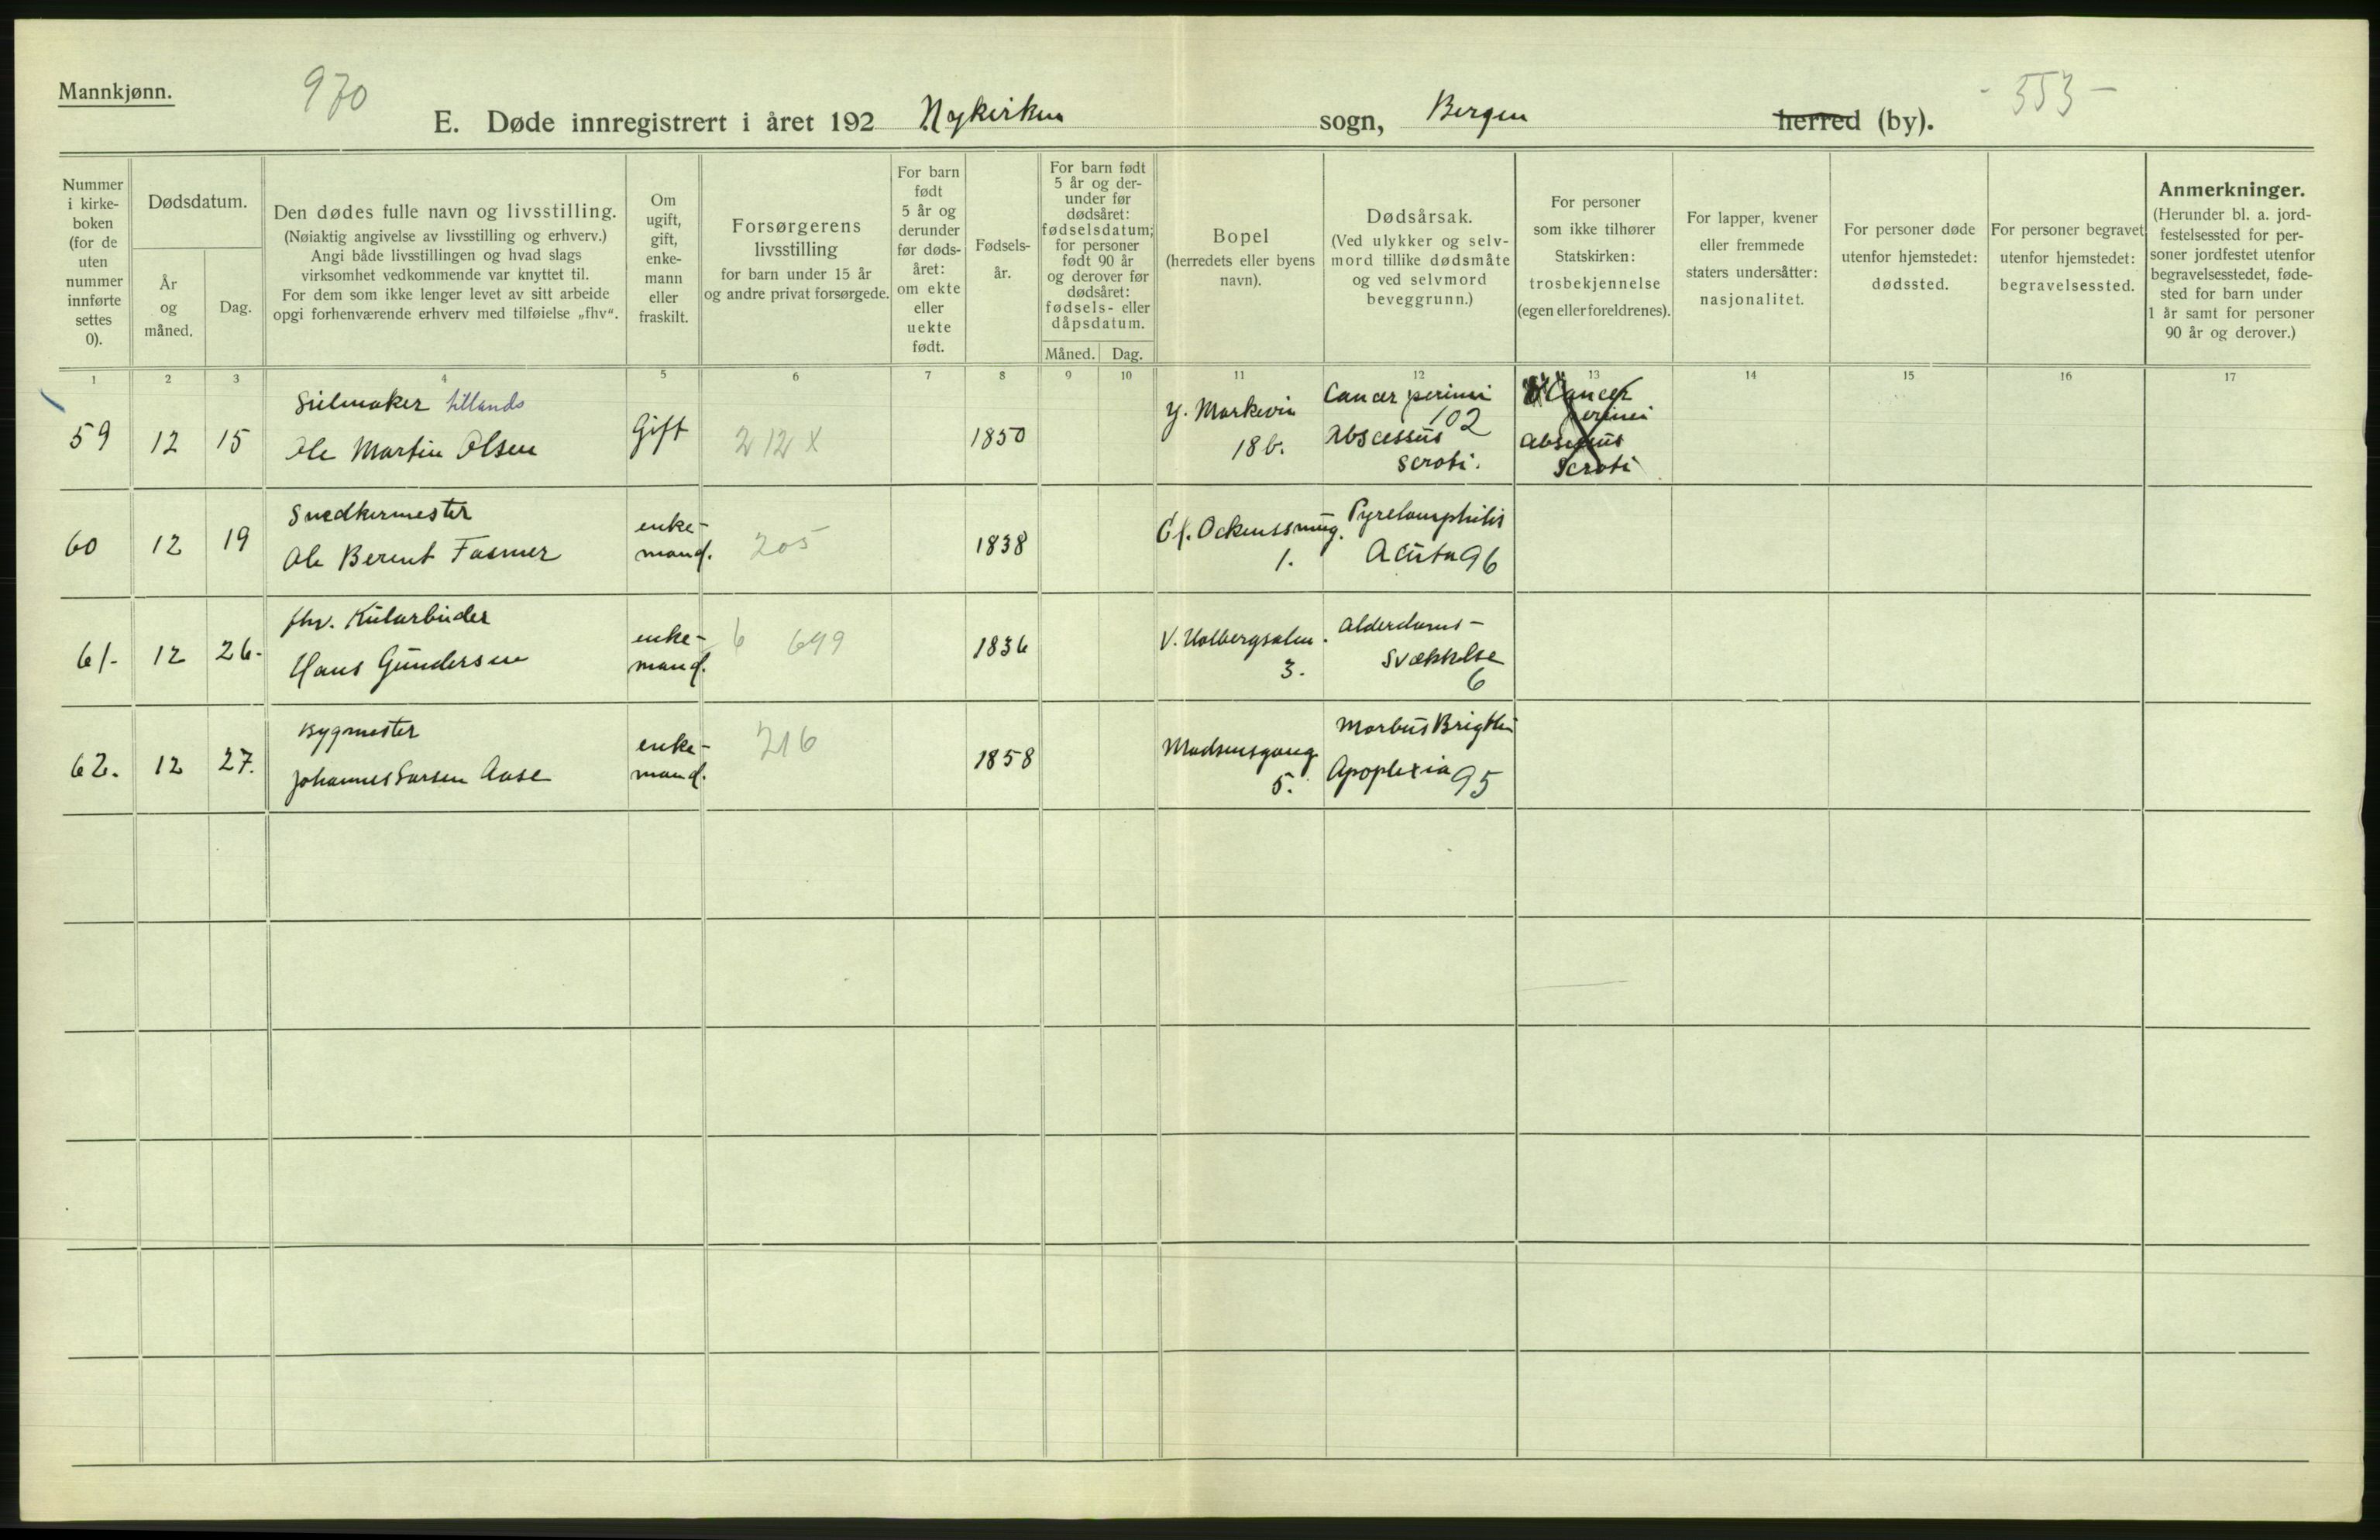 Mannkjønn.
970
E. Døde innregistrert i året 192 Nykirken sogn, Bergen herred (by).
- 553 -
Nummer
i kirke-
boken
(for de
uten
nummer
innførte
settes
0).
Dødsdatum.
År
og
måned.
Dag.
Den dødes fulle navn og livsstilling.
(Nøiaktig angivelse av livsstilling og erhverv.)
Angi både livsstillingen og hvad slags
virksomhet vedkommende var knyttet til.
For dem som ikke lenger levet av sitt arbeide
opgi forhenværende erhverv med tilføielse „fhv“.
Om
ugift,
gift,
enke-
mann
eller
fraskilt.
Forsørgerens
livsstilling
for barn under 15 år
og andre privat forsørgede.
For barn
født
5 år og
derunder
før døds-
året:
om ekte
eller
uekte
født.
Fødsels-
år.
For barn født
5 år og der-
under før
dødsåret:
fødselsdatum;
for personer
født 90 år
og derover før
dødsåret:
fødsels- eller
dåpsdatum.
Måned.
Dag.
Bopel
(herredets eller byens
navn).
Dødsårsak.
(Ved ulykker og selv-
mord tillike dødsmåte
og ved selvmord
beveggrunn.)
For personer
som ikke tilhører
Statskirken:
trosbekjennelse
(egen eller foreldrenes).
For lapper, kvener
eller fremmede
staters undersåtter:
nasjonalitet.
For personer døde
utenfor hjemstedet:
dødssted.
For personer begravet
utenfor hjemstedet:
begravelsessted.
Anmerkninger.
(Herunder bl. a. jord-
festelsessted for per-
soner jordfestet utenfor
begravelsesstedet, føde-
sted for barn under
1 år samt for personer
90 år og derover.)
1 2 3 4 5 6 7 8 9 10 11 12 13 14 15 16 17
59 12 15
Seilmaker tillands
Ole Martin Olsen
Gift
212 X
1850
Y. Markevei
18 b.
Cancer perinei
102
Abscessus
scroti.
Cancer
perinei
Abscessus
Scroti
60 12 19
Snedkermester
Ole Berent Fasmer
enke-
mand.
205
1838
1.
Acuta 96
61. 12 26.
fhv. Kularbeider
Hans Gundersen
enke-
mand.
6 699
1836
V. Holbergsalm.
3.
Alderdoms-
svækkelse
6
62. 12 27.
Bygmester
Johannes Larsen Aase
enke-
mand.
216
1858
Madsensgang
5.
Morbus Brigthii
Apoplexia 95